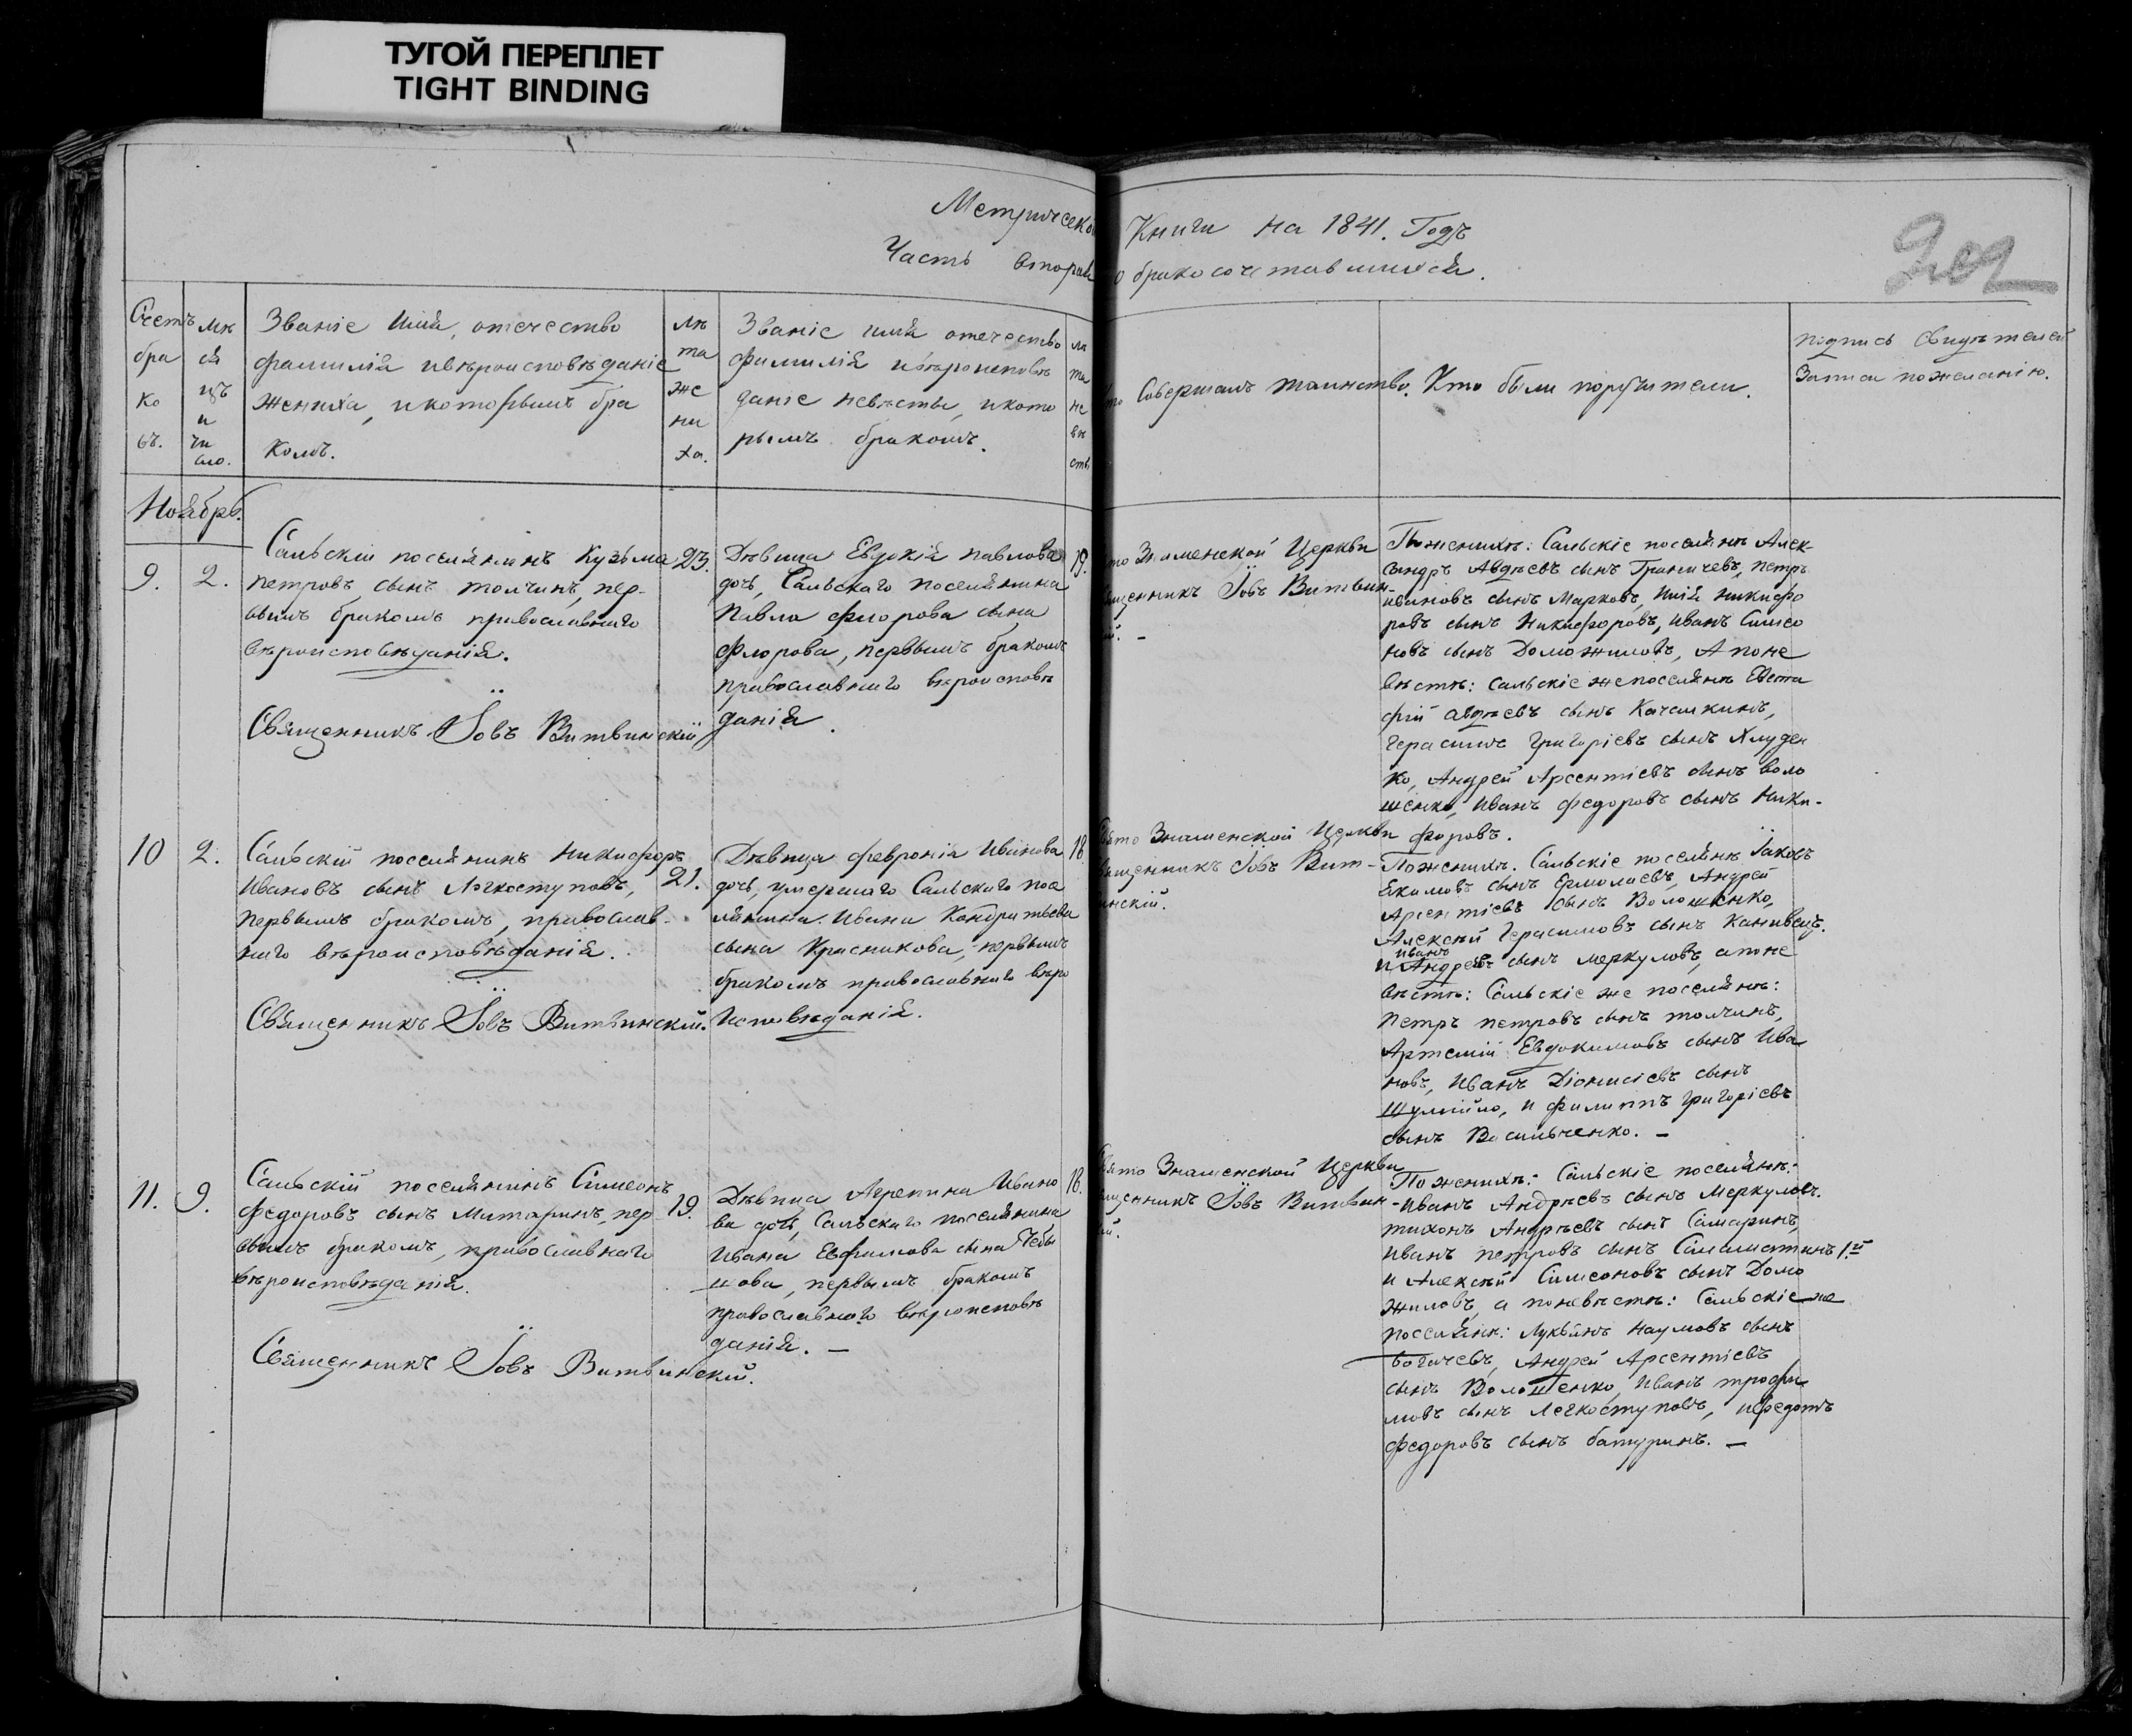 ТУГОЙ ПЕРЕПЛЕТ
TIGHT BINDING
Метрической Книги на 1841. Годъ
Часть вторая о бракосочетавшихся.
202
Счетъ
бра
ко
въ.
мѣ
ся
цъ
и
чи
сло.
Званіе Имя, отечество
фамилія и вѣроисповѣданіе
жениха, и которымъ бра
комъ.
лѣ
та
же
ни
ха.
Званіе имя отечество
фамилія и вѣроисповѣ
даніе невѣсты, и кото
рымъ бракомъ.
лѣ
та
не
вѣ
сты
то Совершалъ таинство.
Кто были поручители.
подпись свидѣтелей
Записи по желанію.
Ноябрь.
9.
2.
Сальскій поселянинъ Кузьма
петровъ сынъ толчинъ, пер-
вымъ бракомъ православнаго
вѣроисповѣданія.
Священникъ Іовъ Витвинскій
23.
Дѣвица Евдокія павлова
дочь, Сальскаго поселянина
Павла Флорова сына
Флорова, первымъ бракомъ
православнаго вѣроисповѣ
данія.
19.
то Знаменской Церкви
щенникъ Іовъ Витвин-
ій. -
По женихѣ: Сальскіе поселяне Алек-
сандръ Авдѣевъ сынъ Граничевъ, петръ
ивановъ сынъ Марковъ, Илія никифо
ровъ сынъ Никифоровъ, иванъ Симео
новъ сынъ Доможиловъ, А по не
вѣстѣ: сальскіе же поселяне Евста
фій авдѣевъ сынъ Качалкинъ,
герасимъ григоріевъ сынъ Хлуден
ко, Андрей Арсентіевъ сынъ воло
шенко, иванъ федоровъ сынъ Ники-
форовъ.
10
2.
Сальскій поселянинъ Никифоръ
Ивановъ сынъ Легкоступовъ,
первымъ бракомъ, православ-
наго вѣроисповѣданія.
Священникъ Іовъ Витвинскій.
21.
Дѣвица февронія Иванова
дочь, умершаго Сальскаго посе
лянина Ивана Кондратьева
сына Красникова, первымъ
бракомъ православнаго вѣро
исповѣданія.
18.
Свято Знаменской Церкви
вященникъ Іовъ Вит-
инскій.
По женихѣ. Сальскіе поселяне Іаковъ
Екимовъ сынъ Ермолаевъ, Андрей
Арсентіевъ сынъ Волошенко,
Алексѣй Герасимовъ сынъ Канивецъ.
иванъ
и Андреевъ сынъ меркуловъ, а по не
вѣстѣ: Сальскіе же поселяне:
петръ петровъ сынъ толчинъ,
Артемій Евдокимовъ сынъ Ива
новъ, Иванъ Діонисіевъ сынъ
Шумейло, и филиппъ григоріевъ
сынъ Васильченко. -
11.
9.
Сальскій поселянинъ Симеонъ
федоровъ сынъ Митаринъ, пер
вымъ бракомъ, православнаго
вѣроисповѣданія.
Священникъ Іовъ Витвинскій.
19.
Дѣвица Агрепина Ивано
ва дочь, Сальскаго поселянина
Ивана Евфимова сына Чебы
шова, первымъ бракомъ
православнаго вѣроисповѣ
данія. -
18.
вято Знаменской Церкви
щенникъ Іовъ Витвин-
ій.
По женихѣ: Сальскіе поселяне:
Иванъ Андрѣевъ сынъ Меркуловъ.
тихонъ Андрѣевъ сынъ Самаринъ,
иванъ петровъ сынъ Саламатинъ 1.й
и Алексѣй Симеоновъ сынъ Домо
жиловъ, а по невѣстѣ: Сальскіе же
поселяне: лукьянъ наумовъ сынъ
богачевъ, Андрей Арсентіевъ
сынъ Волошенко, иванъ трофи
мовъ сынъ Легкоступовъ, и федотъ
федоровъ сынъ батуринъ. -